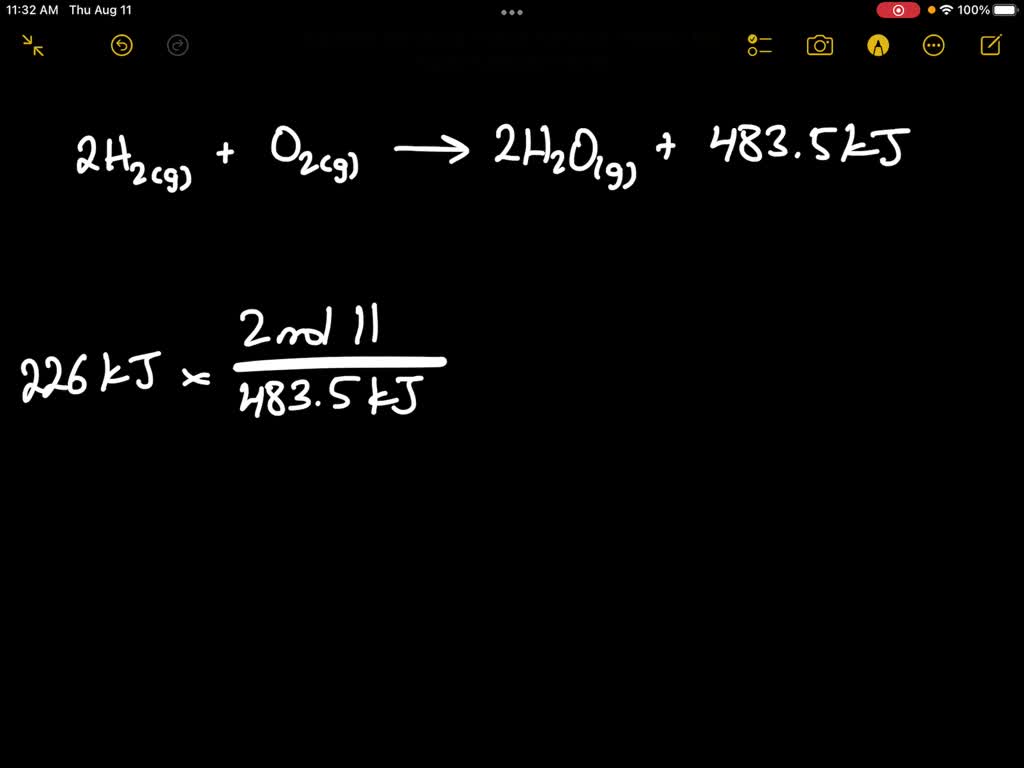 11:32 AM Thu Aug 11
100%
2H₂(g) + O₂(g) → 2H₂O(g) + 483.5kJ
2 mol
226 kJ ×
483.5 kJ